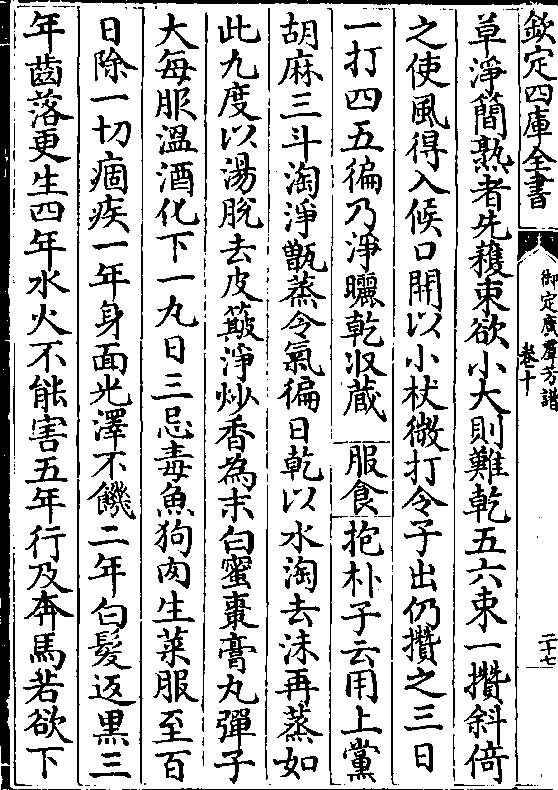 欽定四庫全書
御定廣羣芳譜
卷十
二十七
草淨簡熟者先穫束欲小大則難乾五六束一攢斜倚
之使風得入候口開以小杖微打令子出仍攢之三日
一打四五徧乃淨曬乾收蔵 服食 抱朴子云用上黨
胡麻三斗淘淨甑蒸令氣徧日乾以水淘去沫再蒸如
此九度以湯脫去皮簸淨炒香為末白蜜棗膏丸彈子
大每服溫酒化下一丸日三忌毒魚狗肉生菜服至百
日除一切痼疾一年身面光澤不饑二年白髮返黒三
年齒落更生四年水火不能害五年行及奔馬若欲下